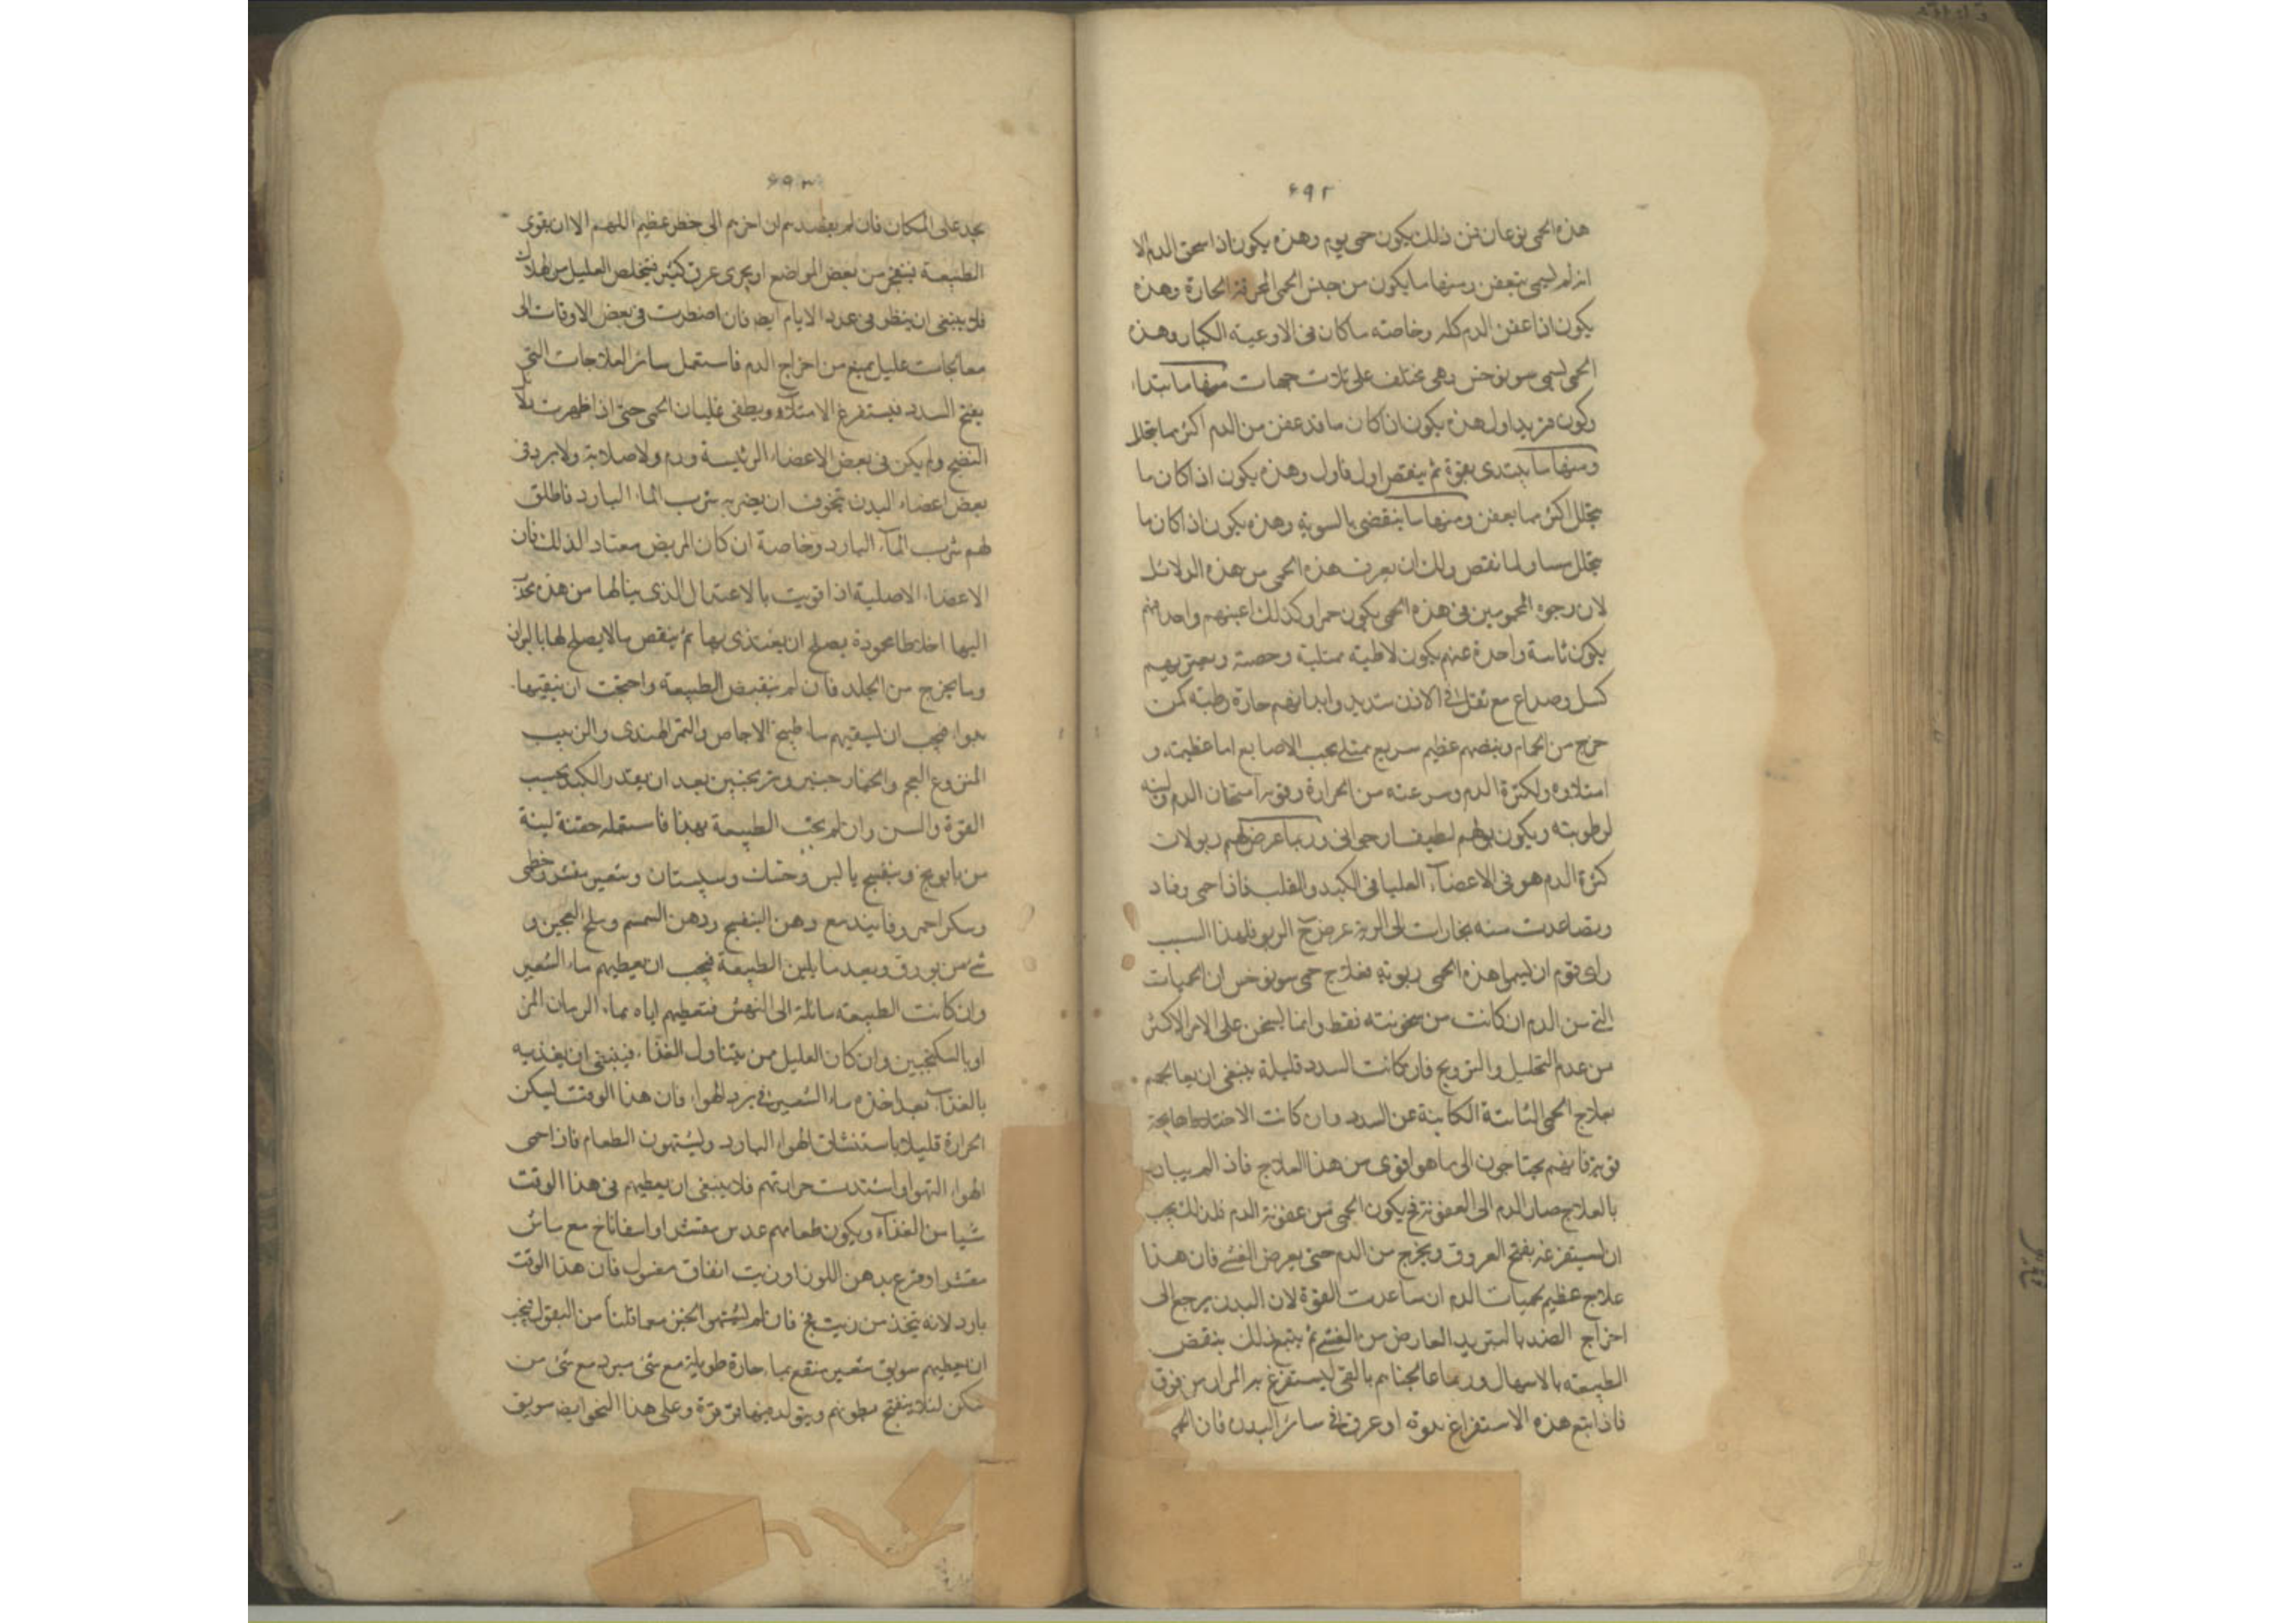 ۶۹۲
هذه الحمى نوعان فمن ذلك يكون حمى يوم وهذه يكون اذا سخن الدم الا
انه لم يعفن ومنها ما يكون من جنس الحمى المحرقة الحارة وهذه
يكون اذا عفن الدم كله وخاصته ما كان فى الاوعية الكبار وهذه
الحمى تسمى سونوخس وهى تختلف على ثلاث جهات منها ما يبتداء
ويكون تزيد اول هذه يكون ان كان ما قد عفن من الدم اكثر مما يتحلل
ومنها ما يبتدى بقوة ثم ينقص اول فاول وهذه يكون اذا كان ما
يتحلل اكثر مما يعفن ومنها ما ينقضى بالسوية وهذه يكون اذا كان ما
يتحلل مساو لما نقص ولك ان يعرف هذه الحمى من هذه الدلائل
لان وجوه المحمومين فى هذه الحمى يكون حمرا وكذلك اعينهم
يكون ممتلية ويعتريهم
كسل وصداع مع ثقل فى الاذن شديد وابدانهم حارة رطبة كمن
خرج من الحمام ونبضهم عظيم سريع ممتلى يجب الاصابع اما عظيمه و
امتلاوه ولكثرة الدم وسرعته من الحرارة وقوته اسخان الدم ولينه
لرطوبته ويكون بولهم وربما عرض لهم ربو لات
كثرة الدم هو فى الاعضاء العليا فى الكبد والقلب فاذا حمى وفاد
وتصاعدت منه بخارات الى الرية عرض ح الربو فلهذا السبب
راى قوم ان يسموا هذه الحمى ربوية فعلاج حمى سونوخس ان الحميات
التى من الدم ان كانت من سخونته فقط وانما يسخن على الامر الاكثر
من عدم التحليل والترويح فان كانت السدد قليلة ينبغى ان يعالجهم
بعلاج الحمى الكاينة عن السدد وان كانت الاختلاط
قوية فانهم يحتاجون الى ما هو اقوى من هذا العلاج فاذ الم
بالعلاج صار الدم الى العفونة فح يكون الحمى من عفونة الدم فلذلك يجب
ان يستفرغه بفتح العروق ويخرج من الدم حتى يعرض الغشى فان هذا
علاج عظيم لحميات الدم ان ساعدت القوة لان البدن يرجع الى
اخراج الضد بالتبريد العارض من الغشى ثم يتبع ذلك بنقض
الطبيعة بالاسهال وربما عالجناهم بالقى ليستفرغ به المرار من فوق
فاذا تبع هذه الاستفراغ او عرق فى سائر البدن فان
۶۹۳
يجد على المكان فان لم يفصدهم ان اخرهم الى خطر عظيم اللهم الا ان يقوى
الطبيعة فينفجر من بعض المواضع او يجرى عرق كثير فيتخلص العليل من الهلاك
فلا ينبغى ان ينظر فى عدد الايام ايضا فان اضطرت فى بعض الاوقات الى
معالجات عليل يمنع من اخراج الدم فاستعمل سائر العلاجات التى
يفتح السدد فيستفرغ الامتلاء ويطفى غليان الحمى حتى اذا ظهرت
النضج ولم يكن فى بعض الاعضاء الرئيسة ورم ولا صلابة ولا برد فى
بعض اعضاء البدن تخوف ان يضر به شرب الماء البارد فاطلق
لهم شرب الماء البارد وخاصة ان كان المريض معتاد الذلك فان
الاعضاء الاصلية اذا قويت بالاعتدال الذى ينالها من هذه
اليها اخلاطا محمودة يصلح ان يغتذى بها ثم ينقص ما لا يصلح لها بالبول
وما يخرج من الجلد فان لم ينقبض الطبيعة واحتجت ان ينقيها
فيجب ان يسقيهم ماء طبيخ الاجاص والتمر الهندى والزبيب
المنزوع العجم والخيار جنبر وترنجبين بعد ان يقدر الكبد بحسب
القوة والسن وان لم يجب الطبيعة بهذا فاستعمله حقنة لينة
من بابونج وبنفسج يابس وحسك وسپستان وشعير مقشر وخطمى
وسكر احمر وفانيد مع دهن البنفسج ودهن السمسم وملح العجين و
شى من بورق وبعد ما يلين الطبيعة فيجب ان يعطيهم ماء الشعير
وان كانت الطبيعة مائلة الى فتعطيهم اياه بماء الرمان المز
او بالسكنجبين وان كان العليل ممن يتناول الغذاء فينبغى ان يغذيه
بالغذاء بعد اخذه ماء الشعير فى برد الهواء فان هذا الوقت ليكن
الحرارة قليلا باستنشاق الهواء البارد ويشتهون الطعام فاذا حمى
الهواء التهبوا واشتدت حرارتهم فلا ينبغى ان يعطيهم فى هذا الوقت
شيا من الغذاء ويكون طعامهم عدس مقشر او اسفاناخ مع ماش
مقشر او قرع بدهن اللوز او زيت انفاق مغسول فان هذا الوقت
بارد لانه يتخذ من زيت فج فان لم يشتهوا الخبز مع ما قلنا من البقول فيجب
ان يعطيهم سويق شعير منقع بماء حارة طويلة مع شئ مبرد مع شئ من
سكر لئلا ينفخ بطونهم ويتولد فيها قرقرة وعلى هذا النحو ايضا سويق